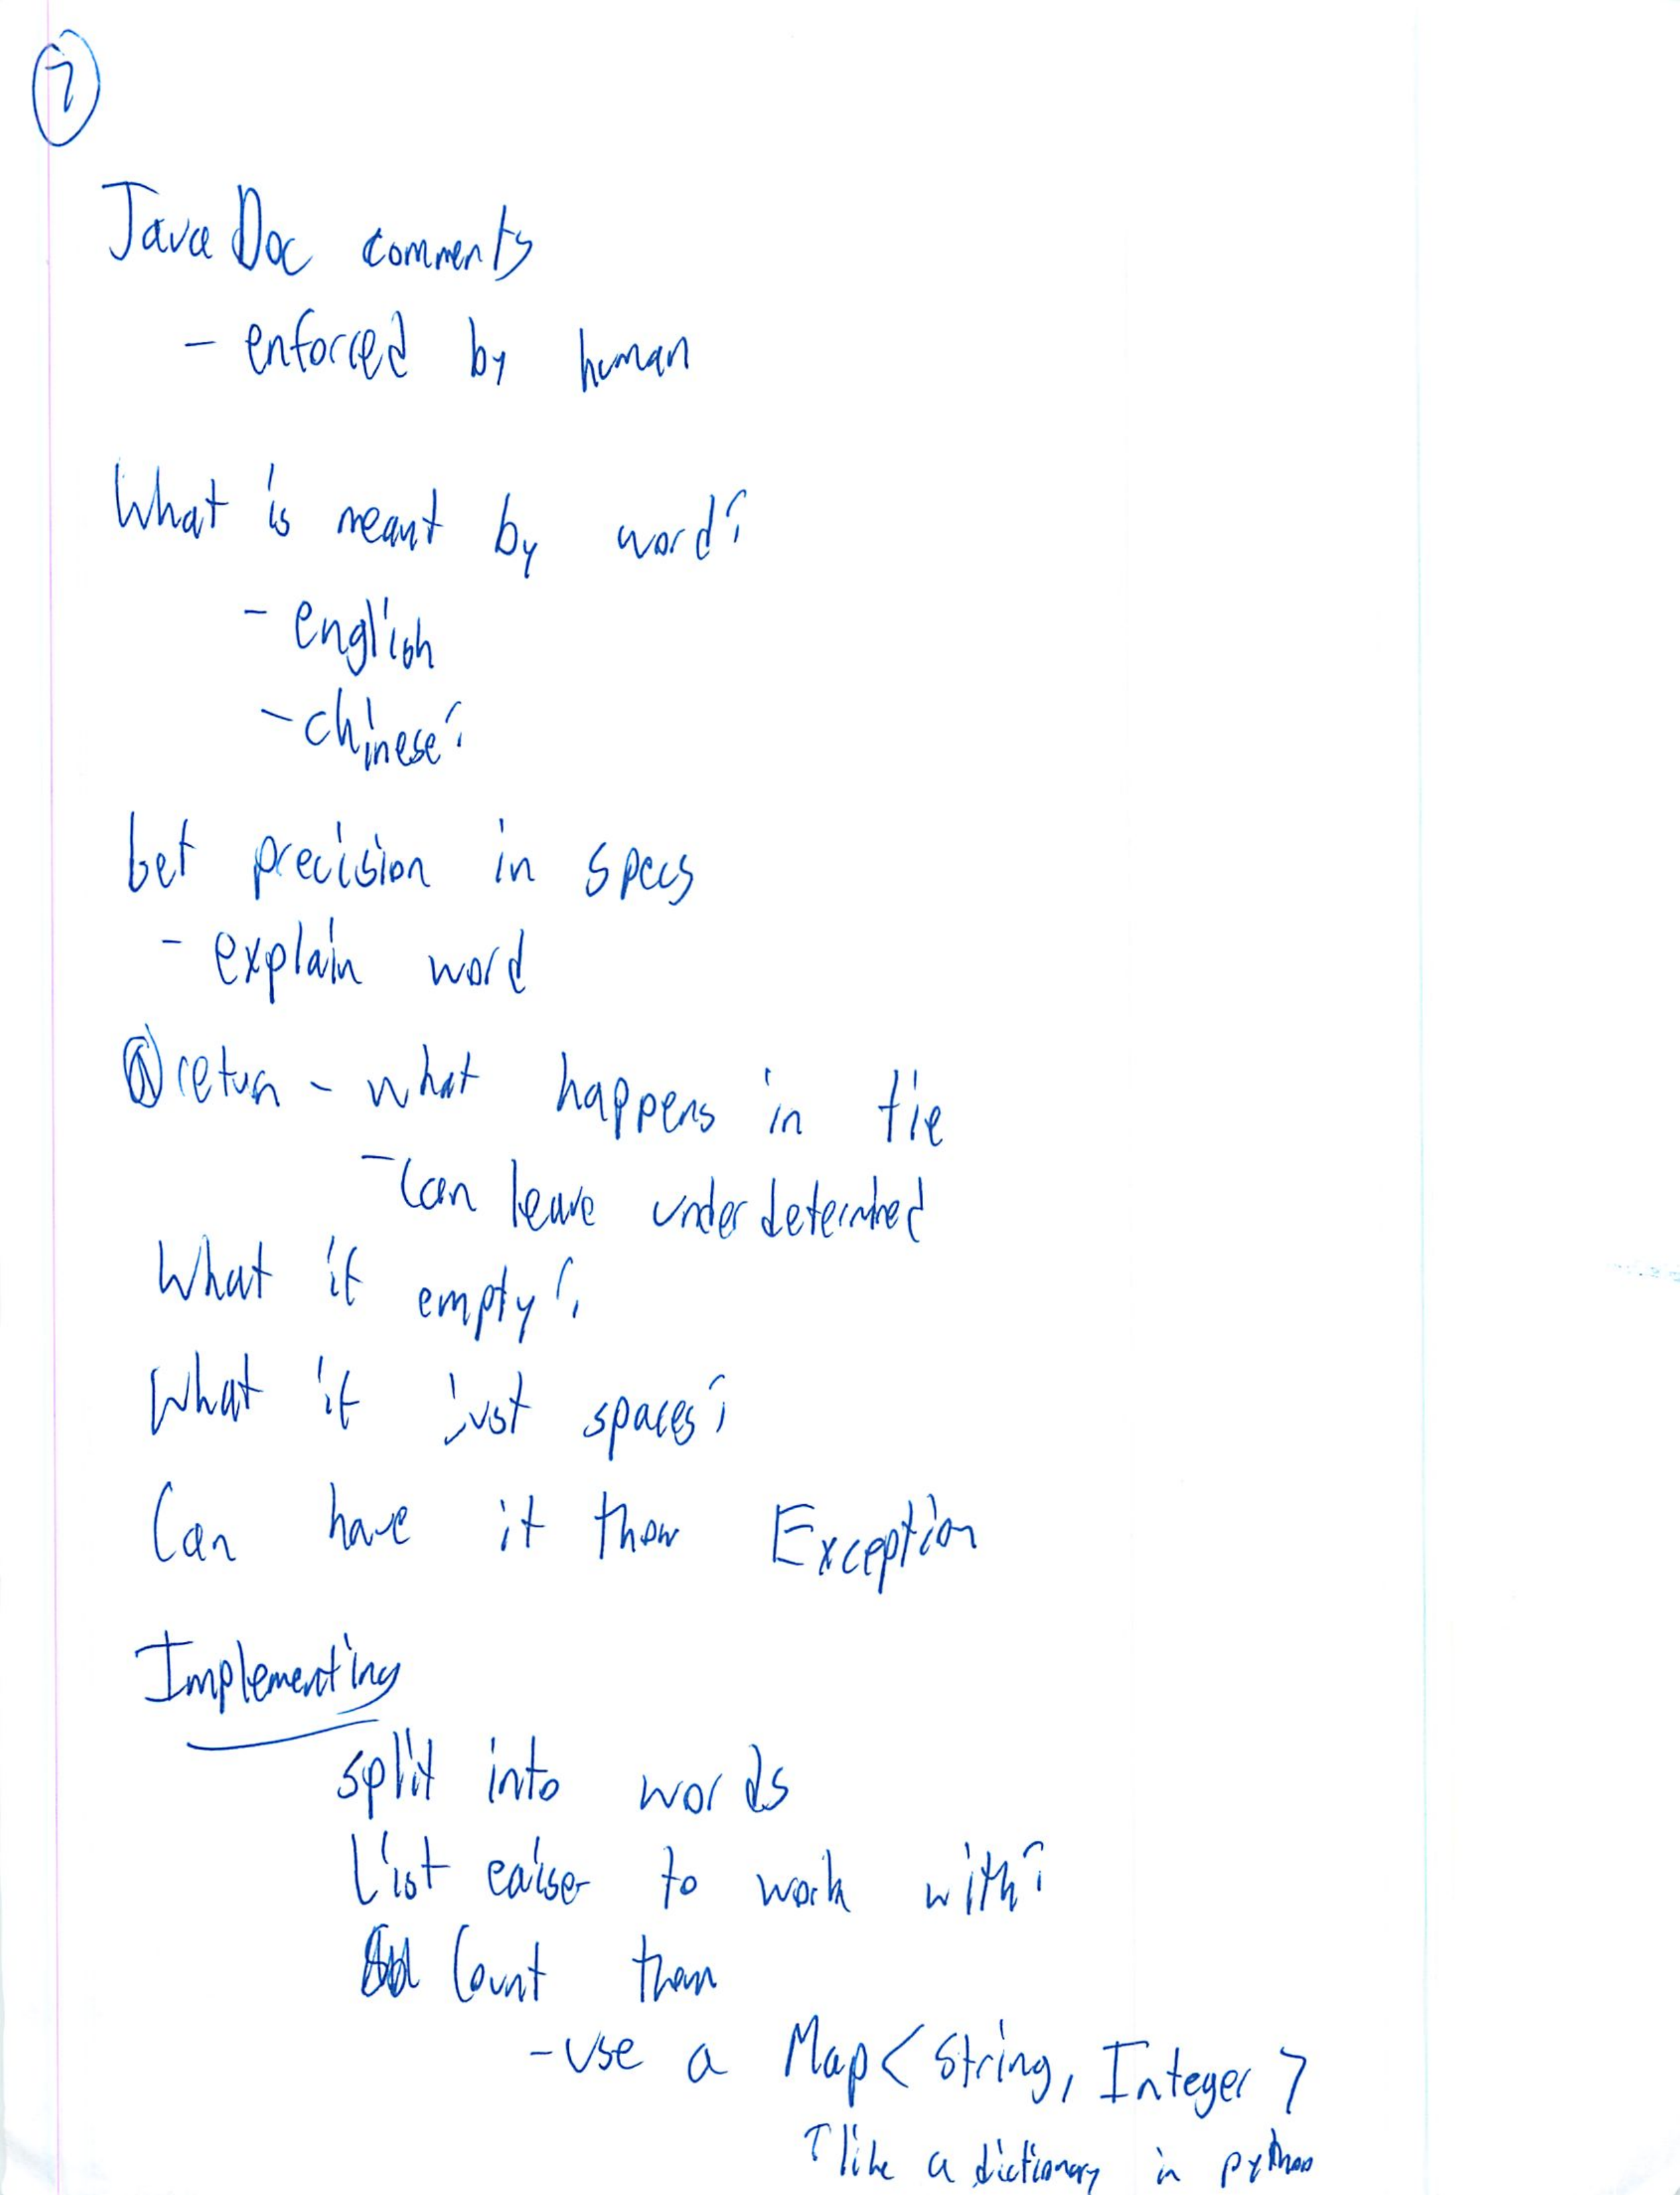 7
JavaDoc comments
- enforced by human
What is meant by word?
- english
- chinese?
Get precision in specs
- explain word
@return - what happens in tie
- Can leave underdetermined
What if empty?
What if just spaces?
Can have it throw Exception
Implementing
split into words
List eaiser to work with?
Count them
- use a Map<String, Integer>
↑ like a dictionary in python